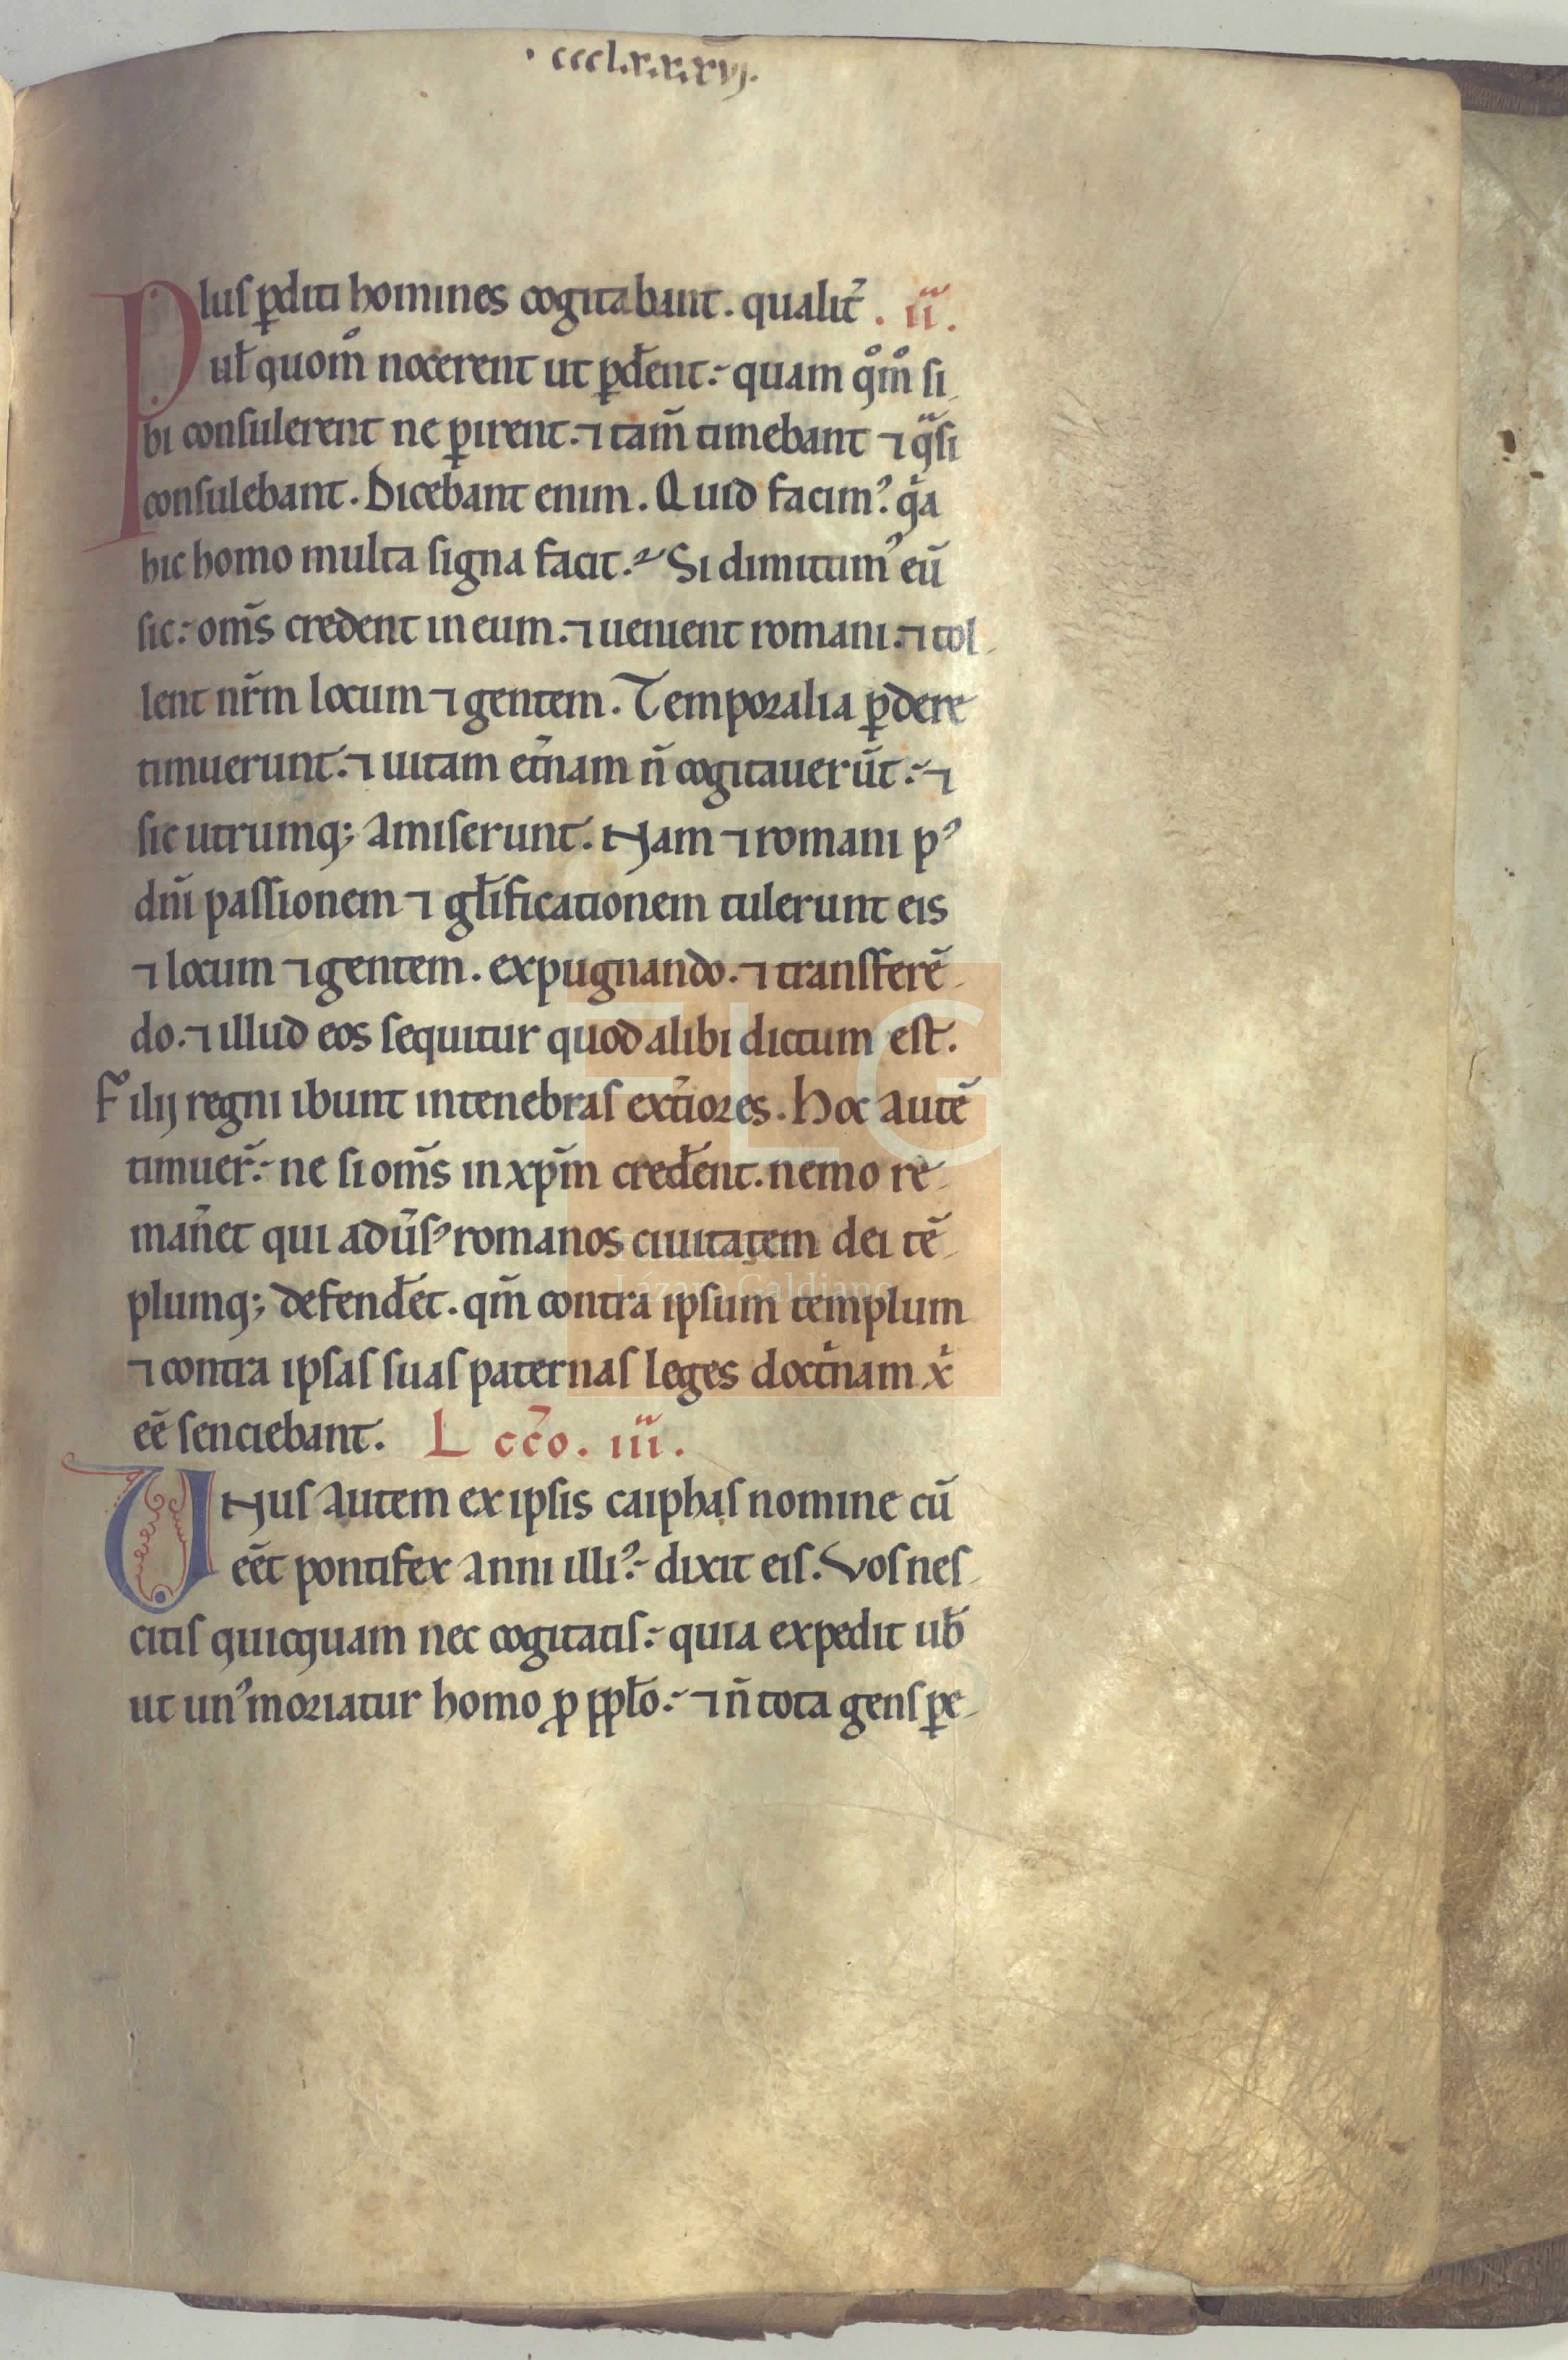 · ccclxxxxvj.
Plus ꝑditi homines cogitabant. qualit̃ . ii.
uƚ quom̊ nocerent ut ꝑdẽnt: quam qͦm̊ si
bi consulerent ne ꝑirent. ⁊ tam̃ timebant ⁊ qͣsi
consulebant. Dicebant enim. Quid facimꝰ? qͥa
hic homo multa signa facit. Si dimittimꝰ eũ
sic: om̃s credent in eum. ⁊ uenient romani. ⁊ tol
lent nr̃m locum ⁊ gentem. Temporalia ꝑdere
timuerunt. ⁊ uitam et̃nam ñ cogitauerũt: ⁊
sic utrumq; amiserunt. Nam ⁊ romani pꝰ
dñi passionem ⁊ gƚificationem tulerunt eis
⁊ locum ⁊ gentem. expugnando. ⁊ transferẽ
do. ⁊ illud eos sequitur quod alibi dictum est.
Filij regni ibunt in tenebras ext̃iores. Hoc autẽ
timuer̃: ne si om̃s in xp̃m credẽnt. nemo re
mañet qui adũsꝰ romanos ciuitatem dei tẽ
plumq; defendẽt. qm̃ contra ipsum templum
⁊ contra ipsas suas paternas leges doctͥnam xͥ
eẽ senciebant. L cc̃o. iii.
UNus autem ex ipsis caiphas nomine cũ
eẽt pontifex anni illiꝰ: dixit eis. Vos nes
citis quicquam nec cogitatis: quia expedit ub̃
ut unꝰ moriatur homo ꝓ ppƚo: ⁊ ñ tota gens ꝑe
FLG
Lázaro Galdiano